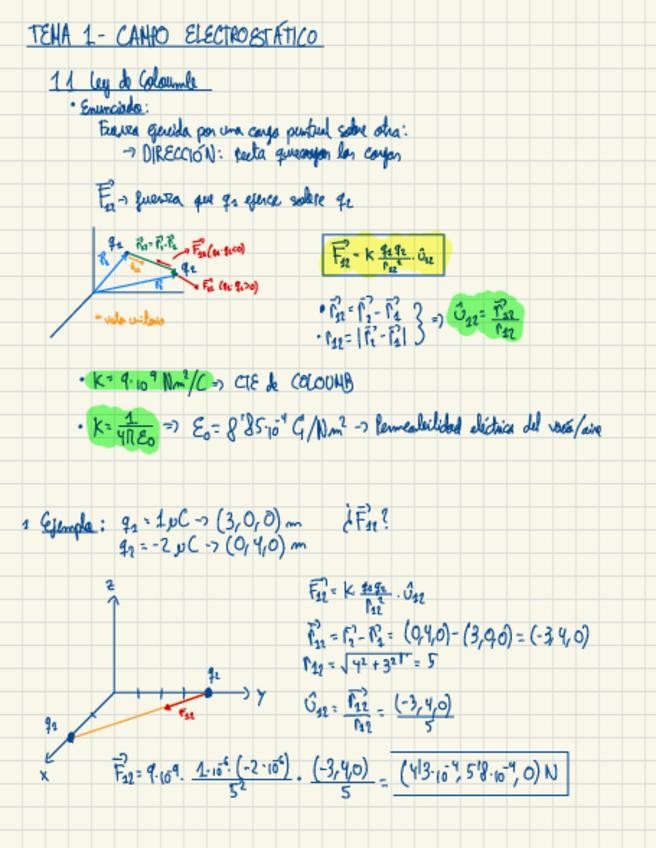 TEMA 1 - CAMPO ELECTROESTÁTICO
1.1 Ley de Coloumb
• Enunciado:
Fuerza ejercida por una carga puntual sobre otra:
→ DIRECCIÓN: recta que las cargas
F₁₂ → fuerza que q₁ ejerce sobre q₂
q₁
F₁₂ (q₁·q₂<0)
q₂
F₁₂ (q₁·q₂>0)
F₁₂ = K q₁q₂/r₁₂² · û₁₂
• r₁₂ = r₂ - r₁
• r₁₂ = |r₂ - r₁| } ⇒ û₁₂ = r₁₂/r₁₂
• K = 9·10⁹ Nm²/C ⇒ CTE de COLOUMB
• K = 1/4πε₀ ⇒ ε₀ = 8'85·10 C/Nm² → Permeabilidad eléctrica del vacío/aire
1 Ejemplo: q₁ = 1 μC → (3, 0, 0) m ¿F₁₂?
q₂ = -2 μC → (0, 4, 0) m
F₁₂ = K q₁q₂/r₁₂² · û₁₂
r₁₂ = r₂ - r₁ = (0,4,0) - (3,0,0) = (-3,4,0)
r₁₂ = √(4² + 3²) = 5
û₁₂ = r₁₂/r₁₂ = (-3,4,0)/5
z
q₂
y
F₁₂
q₁
x
F₁₂ = 9·10⁻⁹ · 1·10⁻⁶·(-2·10⁻⁶)/5² · (-3,4,0)/5 = (4'3·10⁻⁴, 5'8·10⁻⁴, 0) N